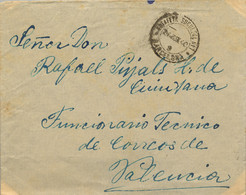 Señor Don
Rafael Pujals H. de
Quintana
Funcionario Tecnico
de Correos de
Valencia
BARCELONA